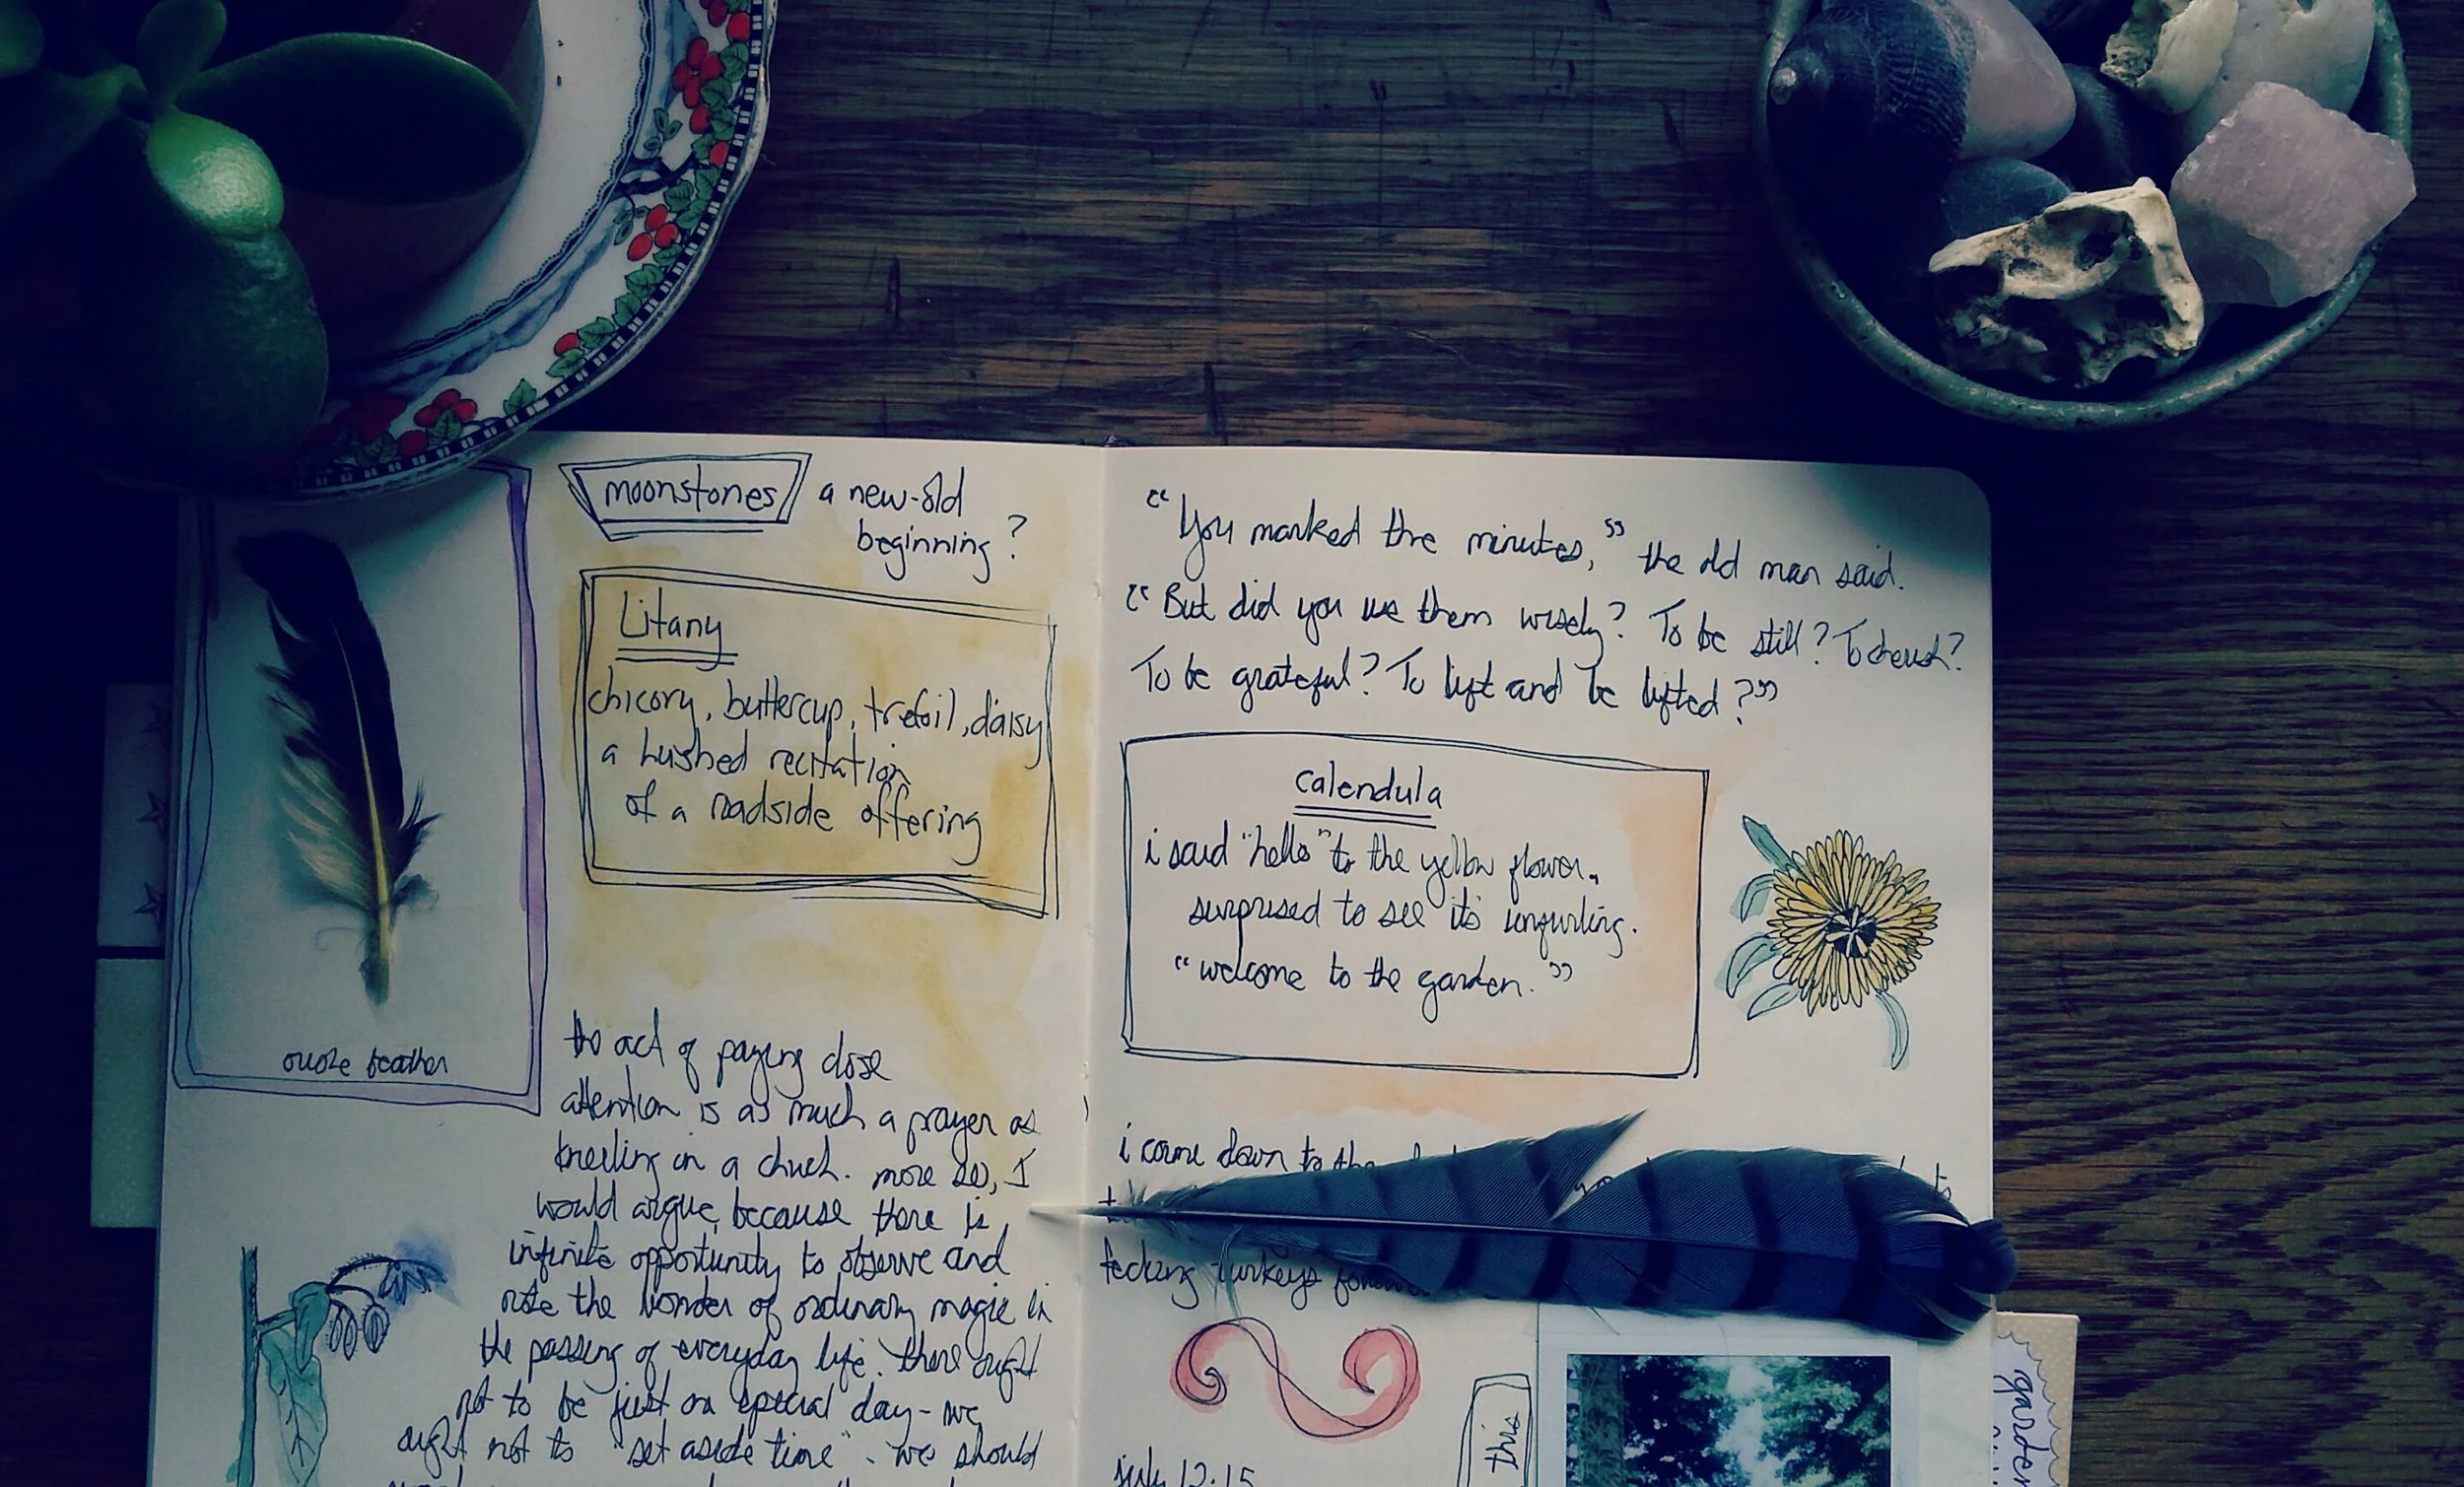 moonstones
a new-old
beginning?
Litany
chicory, buttercup, trefoil, daisy
a hushed recitation
of a roadside offering
feather
the act of paying close
attention is as much a prayer as
kneeling in a church. more so, I
would argue, because there is
infinite opportunity to observe and
note the wonder of ordinary magic in
the passing of everyday life. there ought
not to be just one special day - we
ought not to "set aside time". we should
"You marked the minutes," the old man said.
"But did you use them wisely? To be still? To cherish?
To be grateful? To lift and be lifted?"
calendula
i said "hello" to the yellow flower,
surprised to see its unfurling.
"welcome to the garden."
i come down to the
turkeys
july 12.15
this
garden